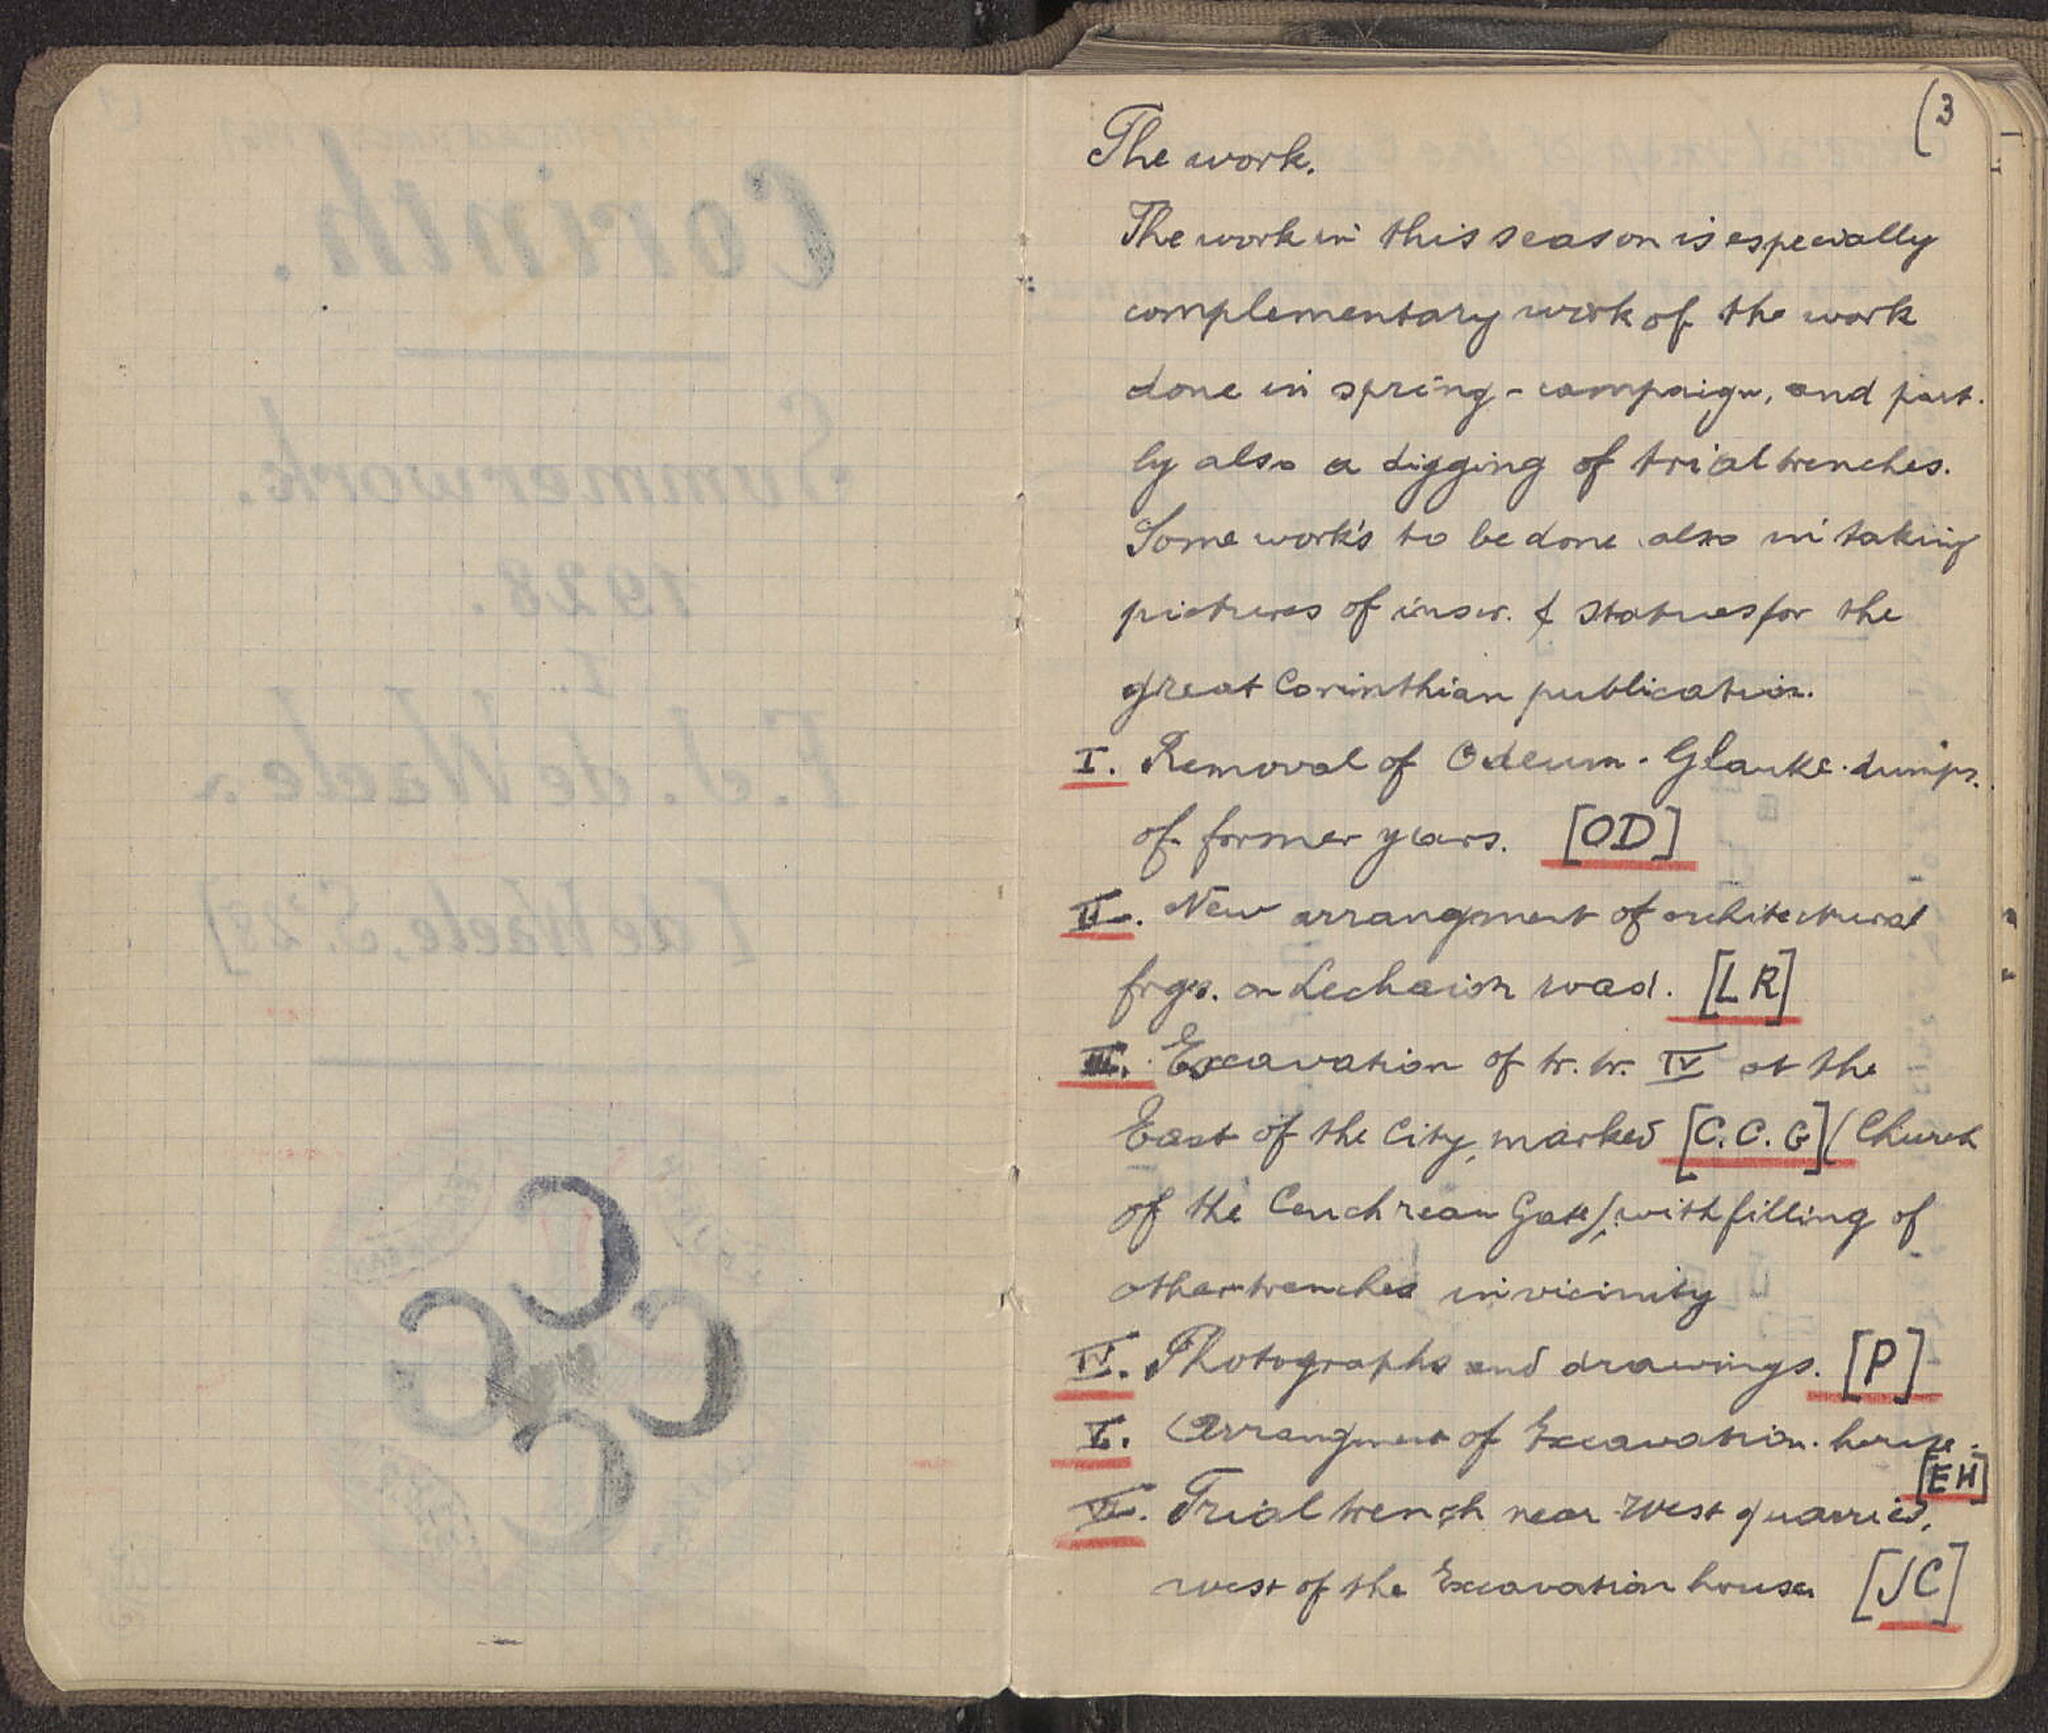 (3
The work.
The work in this season is especially
complementary work of the work
done in spring-campaign, and part-
ly also a digging of trial trenches.
Some work's to be done also in taking
pictures of inscr. & statues for the
great Corinthian publication.
I. Removal of Odeum-Glauke-dumps.
of former years. [OD]
II. New arrangment of architectural
frgs. on Lechaion road. [LR]
III. Excavation of tr. tr. IV at the
East of the City, marked [C.C.G] (Church
of the Cenchrean Gate), with filling of
other trenches in vicinity
IV. Photographs and drawings. [P]
V. Arrangment of Excavation-house.
[EH]
VI. Trial trench near West quarries,
west of the Excavation house [JC]
Corinth.
Summerwork.
1928.
I.
F.J. de Waele.
[de Waele, S. '28]